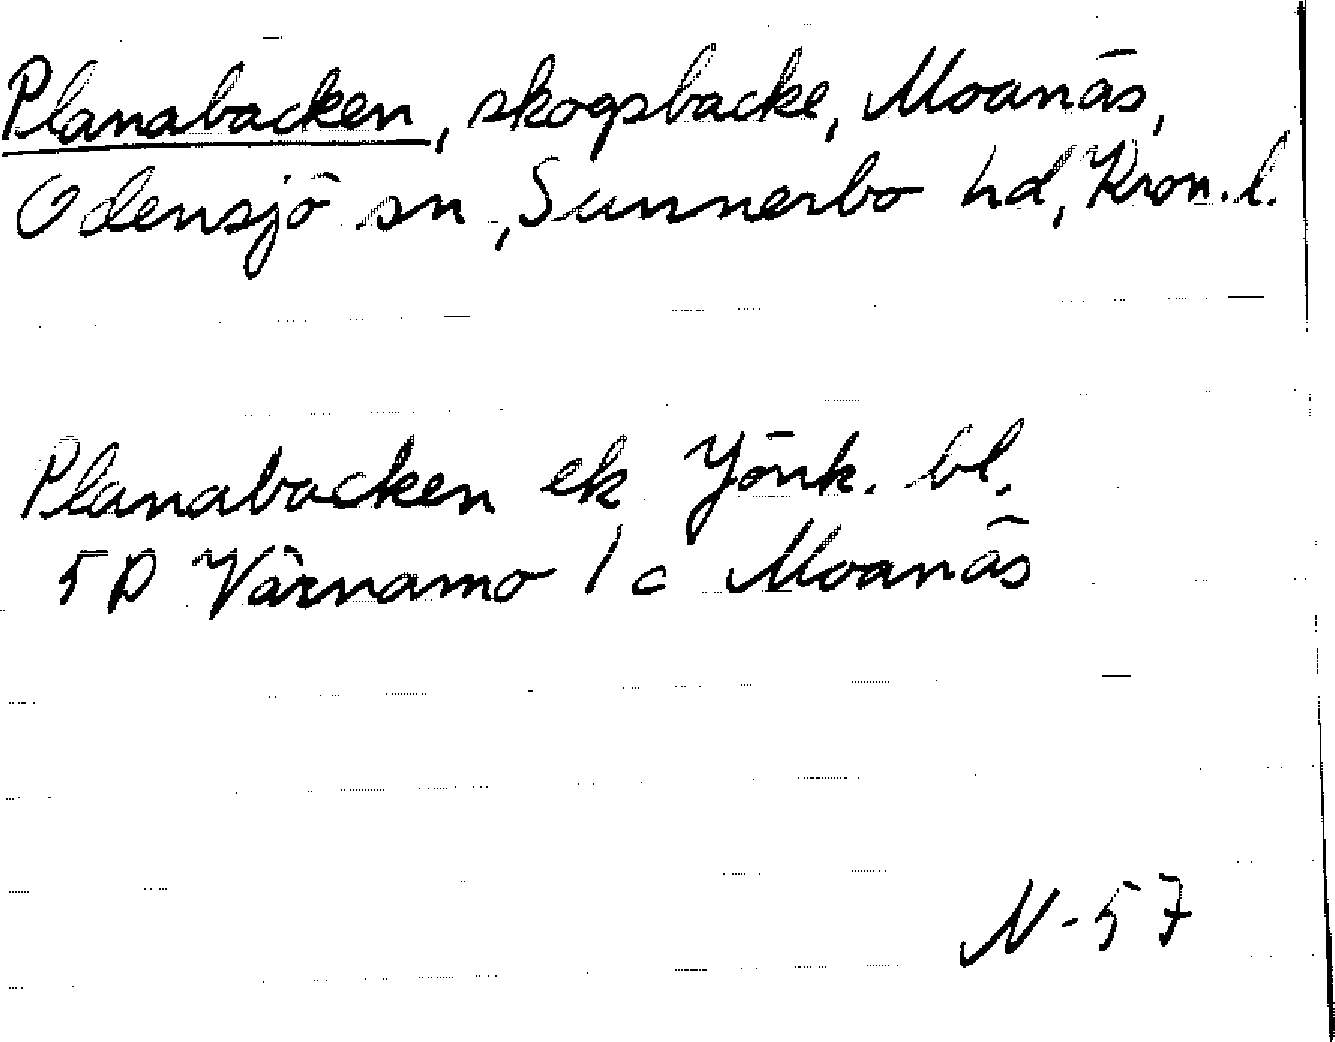 Planabacken, skogsbacke, Moanäs,
Odensjö sn, Sunnerbo hd, Kron. l.
Planabacken ek Jönk. bl.
5D Värnamo 1c Moanäs
N-57